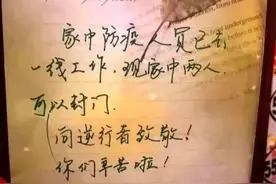 家中防疫人员已去
一线工作，现家中两人，
可以封门.
向逆行者致敬！
你们辛苦啦！